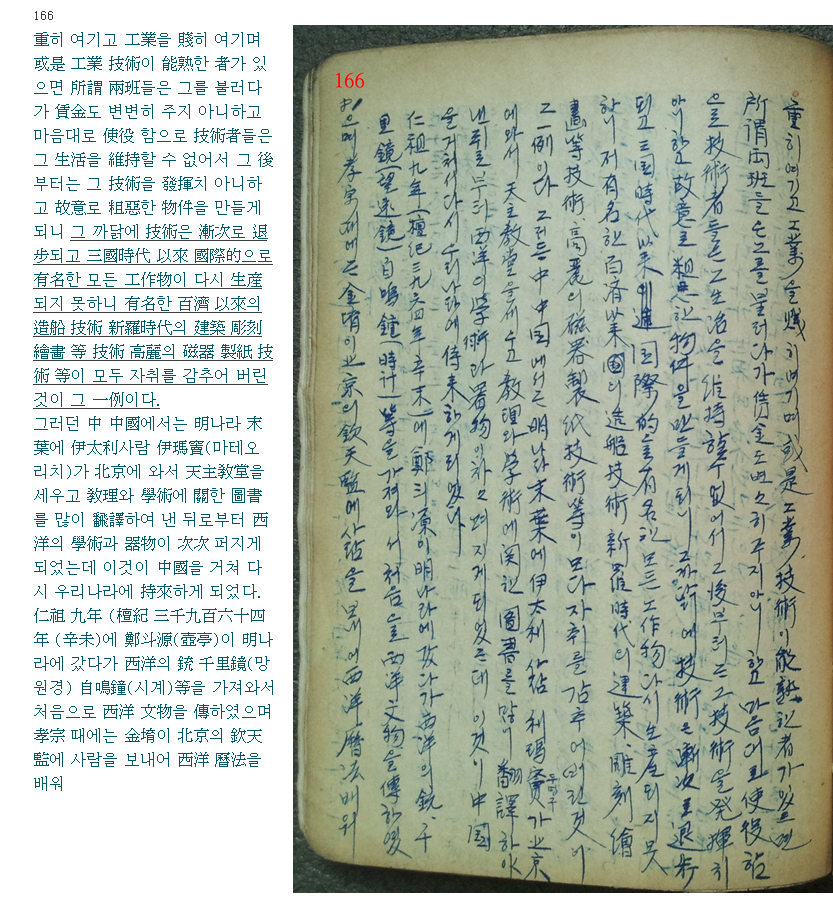 166
重히 여기고 工業을 賤히 여기며
或是 工業 技術이 能熟한 者가 있
으면 所謂 兩班들은 그를 불러다
가 賃金도 변변히 주지 아니하고
마음대로 使役 함으로 技術者들은
그 生活을 維持할 수 없어서 그 後
부터는 그 技術을 發揮치 아니하
고 故意로 粗惡한 物件을 만들게
되니 그 까닭에 技術은 漸次로 退
步되고 三國時代 以來 國際的으로
有名한 모든 工作物이 다시 生産
되지 못하니 有名한 百濟 以來의
造船 技術 新羅時代의 建築 彫刻
繪畫 等 技術 高麗의 磁器 製紙 技
術 等이 모두 자취를 감추어 버린
것이 그 一例이다.
그러던 中 中國에서는 明나라 末
葉에 伊太利사람 伊瑪竇(마테오
리치)가 北京에 와서 天主敎堂을
세우고 敎理와 學術에 關한 圖書
를 많이 飜譯하여 낸 뒤로부터 西
洋의 學術과 器物이 次次 퍼지게
되었는데 이것이 中國을 거쳐 다
시 우리나라에 持來하게 되었다.
仁祖 九年 (檀紀 三千九百六十四
年 (辛未)에 鄭斗源(壺亭)이 明나
라에 갔다가 西洋의 銃 千里鏡(망
원경) 自鳴鐘(시계)等을 가져와서
처음으로 西洋 文物을 傳하였으며
孝宗 때에는 金堉이 北京의 欽天
監에 사람을 보내어 西洋 曆法을
배워
166
重히 여기고 工業을 賤히 여기며 或是 工業 技術이 能熟한 者가 있으면
所謂 兩班들은 그를 불러다가 賃金도 변변히 주지 아니하고 마음대로 使役함
으로 技術者들은 그 生活을 維持할 수 없어서 그 後부터는 그 技術을 発揮치
아니하고 故意로 粗悪한 物件을 만들게 되니 그 까닭에 技術은 漸次로 退步
되고 三國時代 以來 國際的으로 有名한 모든 工作物 다시 生産되지 못
하니 저 有名한 百済 以來의 造船技術 新羅時代의 建築 雕刻 繪
畵等 技術 高麗의 磁器 製紙技術等이 모다 자취를 감추어 버린 것이
그 一例이다 그러든 中 中國에서는 明나라 末葉에 伊太利사람 利瑪竇가 北京
에 와서 天主敎堂을 세우고 敎理와 學術에 関한 圖書를 많이 翻譯하야
낸 뒤로부터 西洋의 學術과 器物이 차차 퍼지게 되였는데 이것이 中國
을 거처서 다시 우리나라에 侍來하게 되였다
仁祖九年(檀紀三九六四年 辛末)에 鄭斗源이 明나라에 갔다가 西洋의 銃 千
里鏡(望遠鏡) 自鳴鐘(時計)等을 가져와서 처음으로 西洋文物을 傳하였
으며 孝宗때에는 金堉이 北京의 欽天監에 사람을 보내어 西洋曆法 배워